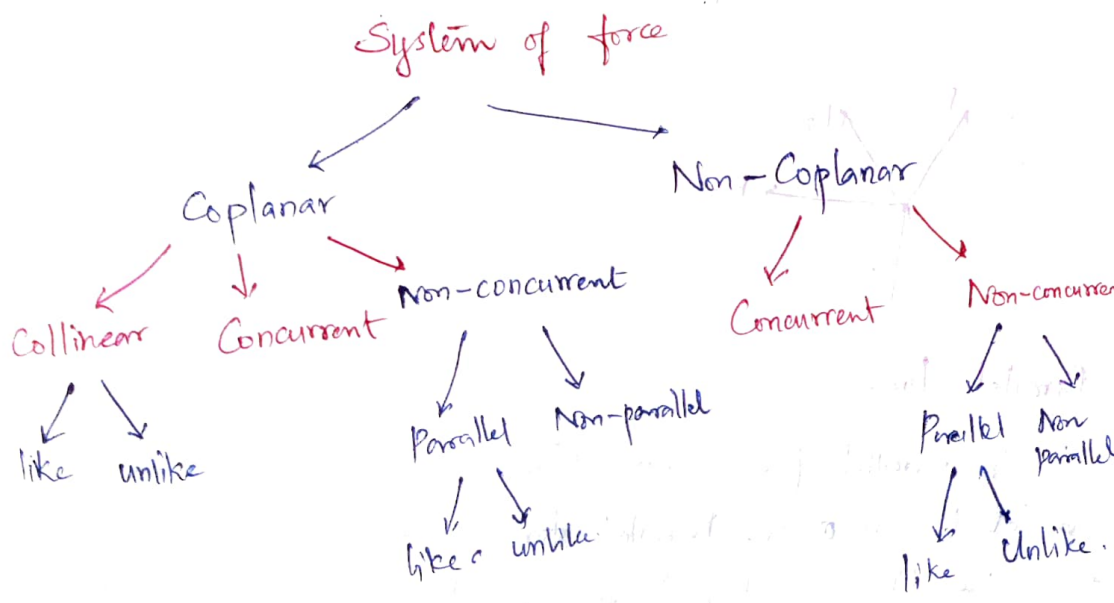 System of force
Coplanar
Non-Coplanar
Collinear
Concurrent
Non-concurrent
Concurrent
Non-concurren
like
unlike
Parallel
Non-parallel
Parallel
Non
parallel
like
unlike.
like
Unlike.